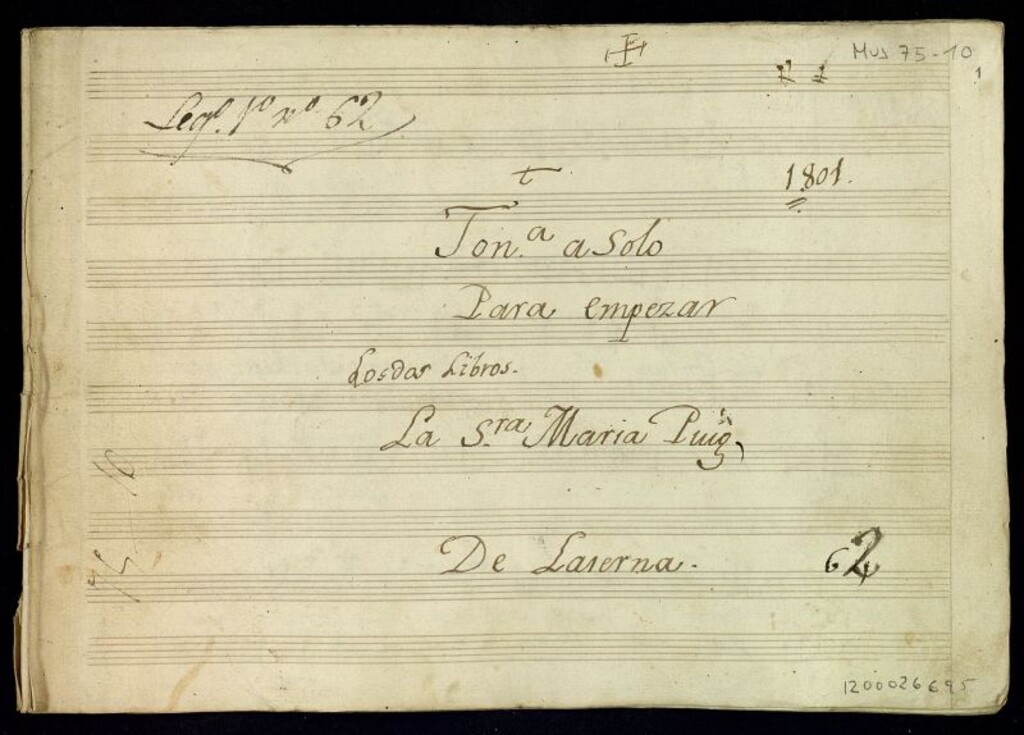 Mus 75-10
1
Leg.º 1º nº 62
1801.
Ton.ª a Solo
Para empezar
Los dos Libros.
La S.ra Maria Puig,
De Laserna.
62
75
1200026695